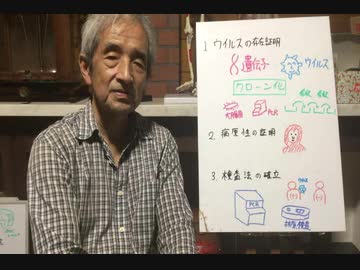 1. ウイルスの存在証明
遺伝子
ウイルス
クローン化
大腸菌
PCR
2. 病原性の証明
3. 検査法の確立
PCR
抗原検査